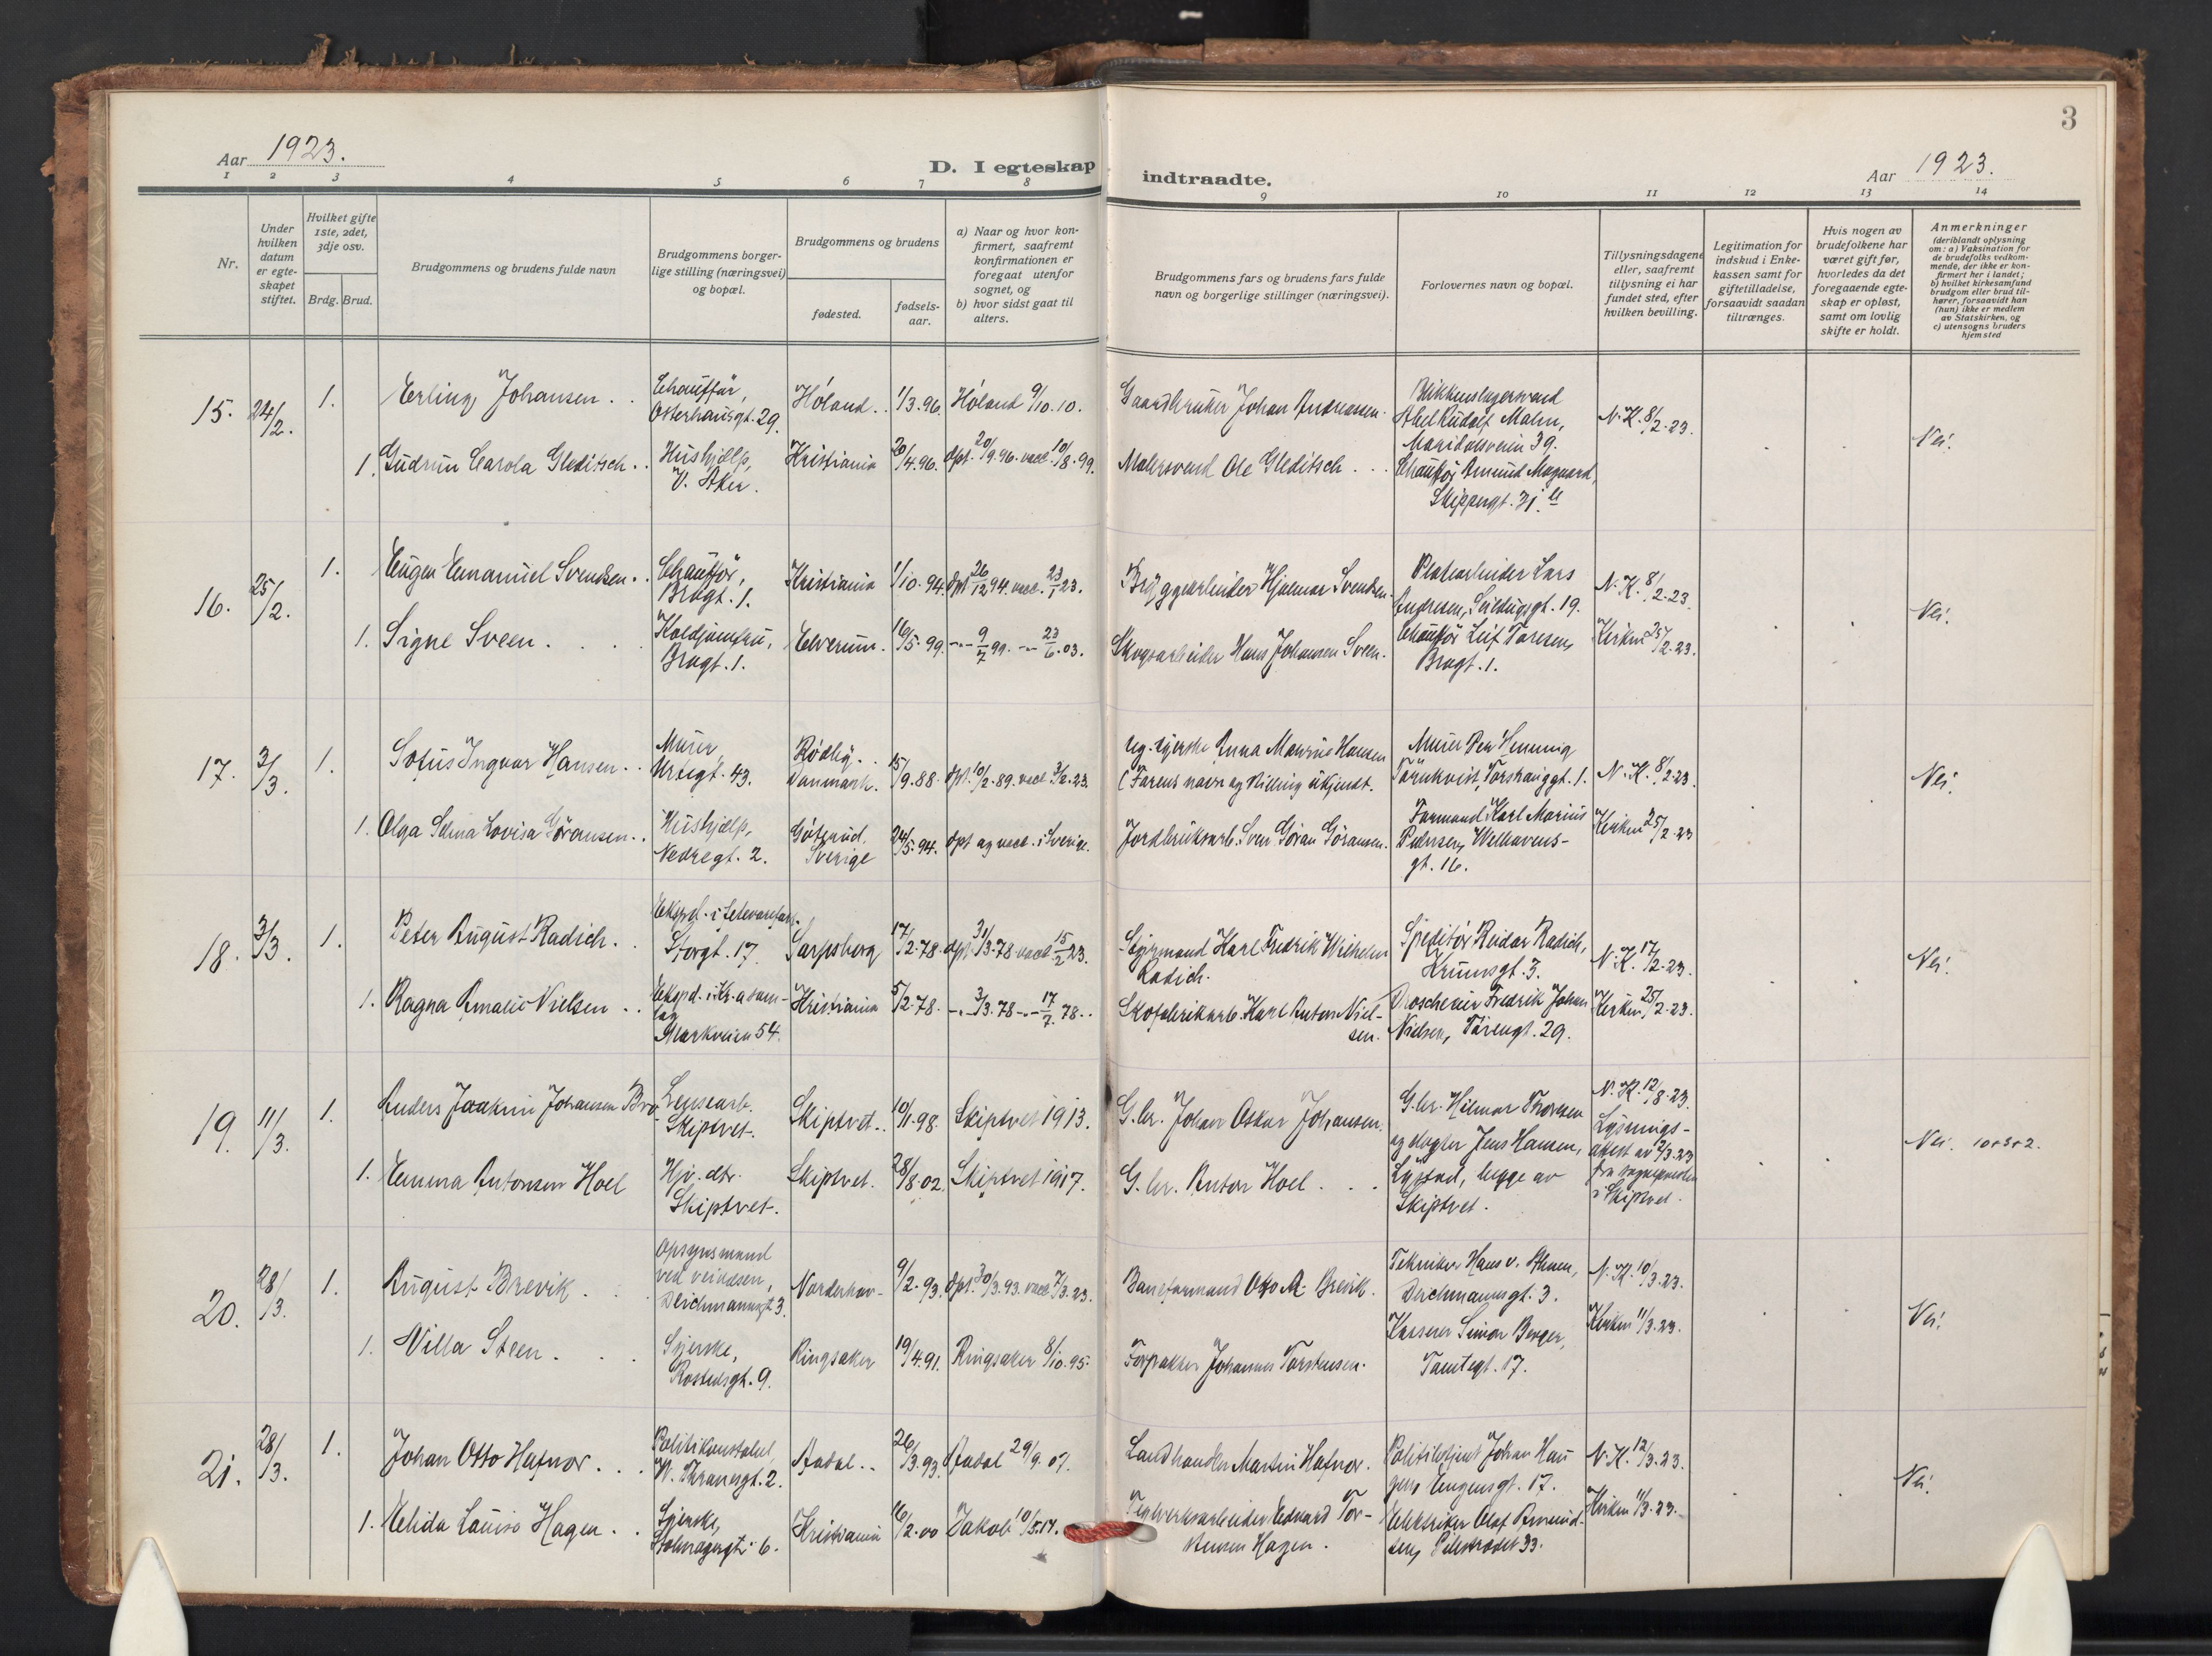 3
Aar 1923.
D. I egteskap
indtraadte.
Aar 1923.
1 2 3 4 5 6 7 8
9 10 11 12 13 14
Nr.
Under hvilken datum er egte-skapet stiftet.
Hvilket gifte 1ste, 2det, 3dje osv.
Brdg. Brud.
Brudgommens og brudens fulde navn
Brudgommens borger-lige stilling (næringsvei) og bopæl.
Brudgommens og brudens
fødested.
fødsels-aar.
a) Naar og hvor kon-firmert, saafremt konfirmationen er foregaat utenfor sognet, og
b) hvor sidst gaat til alters.
Brudgommens fars og brudens fars fulde navn og borgerlige stillinger (næringsvei).
Forlovernes navn og bopæl.
Tillysningsdagene eller, saafremt tillysning ei har fundet sted, efter hvilken bevilling.
Legitimation for indskud i Enke-kassen samt for giftetilladelse, forsaavidt saadan tiltrænges.
Hvis nogen av brudefolkene har været gift før, hvorledes da det foregaaende egte-skap er opløst, samt om lovlig skifte er holdt.
Anmerkninger
(deriblandt oplysning om: a) Vaksination for de brudefolks vedkom-mende, der ikke er kon-firmert her i landet; b) hvilket kirkesamfund brudgom eller brud til-hører, forsaavidt han (hun) ikke er medlem av Statskirken, og c) utensogns bruders hjemsted
15. 24/2. 1. Erling Johansen. Chauffør, Osterhausgt. 29. Høland. 1/3.96. Høland 9/10.10. Gaardbruker Johan Andreassen. Blikkenslagersvend Abel Rudolf Malm, Maridalsveien 39. N.K. 8/2.23. Nei.
1. Gudrun Carola Gleditsch. Hushjælp, V. Aker. Kristiania 20/4.96. dpt. 20/9.96. vacc. 10/8.99. Malersvend Ole Gleditsch. Chauffør Amund Skippergt. 31.
16. 25/2. 1. Eugen Emanuel Svendsen. Chauffør, Brogt. 1. Kristiania 1/10.94. dpt 26/12 94. vacc. 23/1 23. Bryggearbeider Hjalmar Svendsen. Platearbeider Lars Andresen, Seildugsgt. 19. N.K. 8/2.23. Nei.
1. Signe Sveen. Koldjomfru, Brogt. 1. Elverum. 16/5.99. -"- 9/7 99. -"- 23/6.03. Skogsarbeider Hans Johansen Sveen. Chauffør Leif Toresen, Brogt. 1. Kirken 25/2.23.
17. 3/3. 1. Sofus Ingvar Hansen. Murer, Urtegt. 43. Rødby. Danmark. 15/9.88. dpt. 10/2.89. vacc. 3/2.23. ug. syerske Anna Maurine Hansen (Farens navn og stilling ukjendt. Murer Per Henning Törnkvist, Torshauggt. 1. N.K. 8/2.23. Nei.
1. Olga Selma Lovisa Göransen. Hushjælp, Nedregt. 2. Sverige 24/5.94. dpt og vacc. i Sverige. Jordbruksarb. Sven Göran Göransen. Formand Karl Marius Pedersen, Welhavens-gt. 16. Kirken 25/2.23
18. 3/3. 1. Peter August Radich. Storgt. 17. Sarpsborg 17/2.78. dpt. 31/3.78 vacc. 15/2 23. Styrmand Karl Fredrik Wilhelm Radich. Speditør Reidar Radich, Krumsgt. 3. N.K. 17/2.23. Nei.
1. Ragna Amalie Nielsen. Eksped. i Kr.a sam-lag Markveien 54. Kristiania 5/2.78. -"- 3/3.78 -"- 17/7. 78. Skofabrikarb. Karl Anton Niel-sen. Droscheeier Fredrik Johan Nielsen, Tøiengt. 29. Kirken 25/2.23.
19. 11/3. 1. Anders Joakim Johansen Bro. Lensearb. Skiptvet. Skiptvet. 10/11.98. Skiptvet 1913. G.br. Johan Oskar Johansen. G.br. Hilmar Thoresen og Jens Hansen, Lystad, begge av Skiptvet. N.K. 12/8.23. Lysnings-attest av 2/3.23 fra sognepresten i Skiptvet. Nei. 10+3+2.
1. Emma Antonsen Hoel Hjv. dtr. Skiptvet. Skiptvet. 28/8.02. Skiptvet 1917. G.br. Anton Hoel.
20. 28/3. 1. August Brevik. Opsynsmand ved veivæsen, Deichmannsgt 3. Norderhov. 9/2.93. dpt. 30/3.93. vacc 7/3.23. Baneformand Otto M. Brevik. Tekniker Hans v. Ahnen, Deichmannsgt. 3. N.K. 10/3.23. Nei.
1. Villa Steen. Syerske, Rostedsgt. 9. Ringsaker 19/4.91. Ringsaker 8/10.95. Forpakter Johannes Torstensen. Kasserer Simon Berger, Tomtegt. 17. Kirken 11/3.23.
21. 28/3. 1. Johan Otto Hafnor. Politikonstabel, W. Thranesgt. 2. Aadal. 26/3.93. Aadal 29/9.07. Landhandler Martin Hafnor. Politibetjent Johan Hau-gen, Engensgt. 17. N.K. 12/3.23. Nei.
1. Elida Lovise Hagen. Syerske, Stolmagergt. 6. Kristiania 16/2.00 Jakob 10/5.14. Teglverksarbeider Edvard Tor-stensen Hagen. Elektriker Olaf Amund-sen, Pilestrædet 33. Kirken 11/3.23.